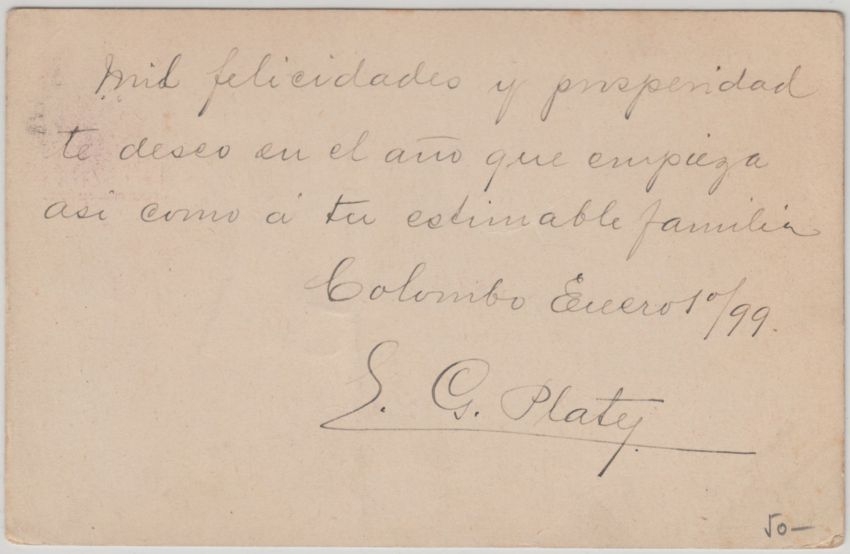 Mil felicidades y prosperidad
te deseo en el año que empieza
asi como á tu estimable familia
Colombo Enero 1º/99.
G. Platy
50—